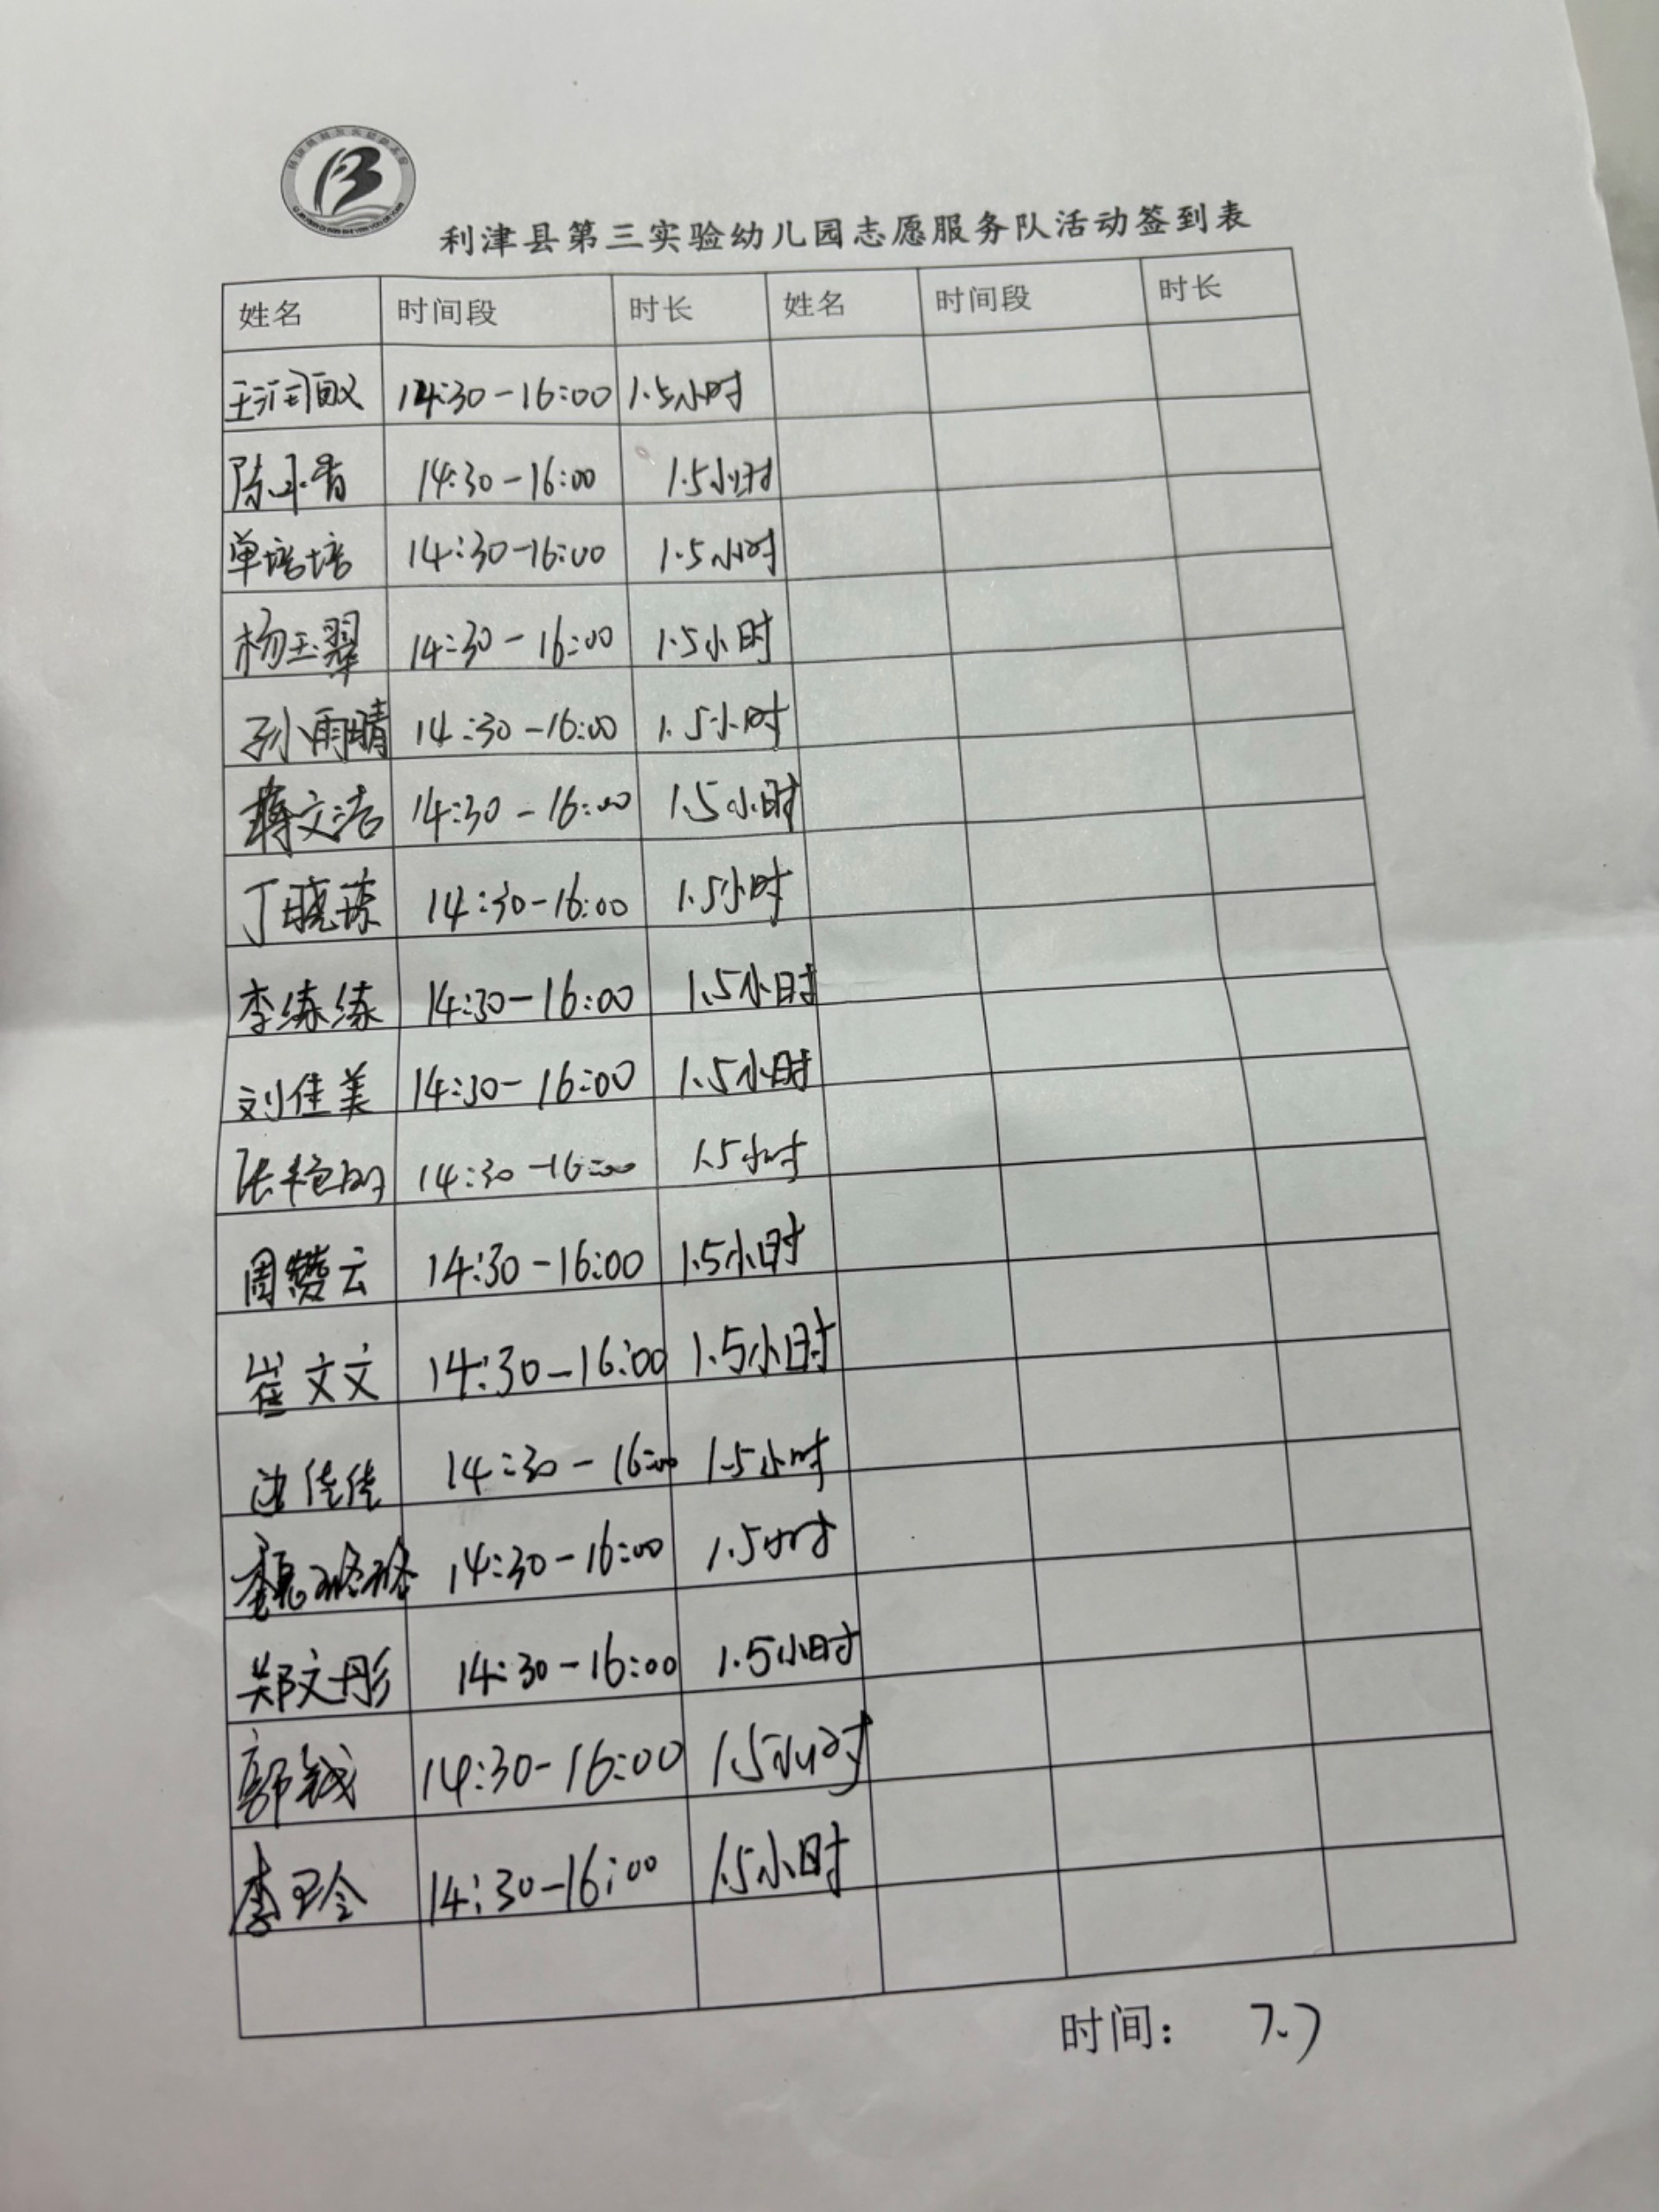 利津县第三实验幼儿园志愿服务队活动签到表
姓名 时间段 时长 姓名 时间段 时长
14:30-16:00 1.5小时
陈小香 14:30-16:00 1.5小时
单培培 14:30-16:00 1.5小时
杨玉翠 14:30-16:00 1.5小时
孙雨晴 14:30-16:00 1.5小时
蒋文洁 14:30-16:00 1.5小时
丁晓琼 14:30-16:00 1.5小时
李练练 14:30-16:00 1.5小时
刘佳美 14:30-16:00 1.5小时
张艳 14:30-16:00 1.5小时
周赞云 14:30-16:00 1.5小时
崔文文 14:30-16:00 1.5小时
边佳佳 14:30-16:00 1.5小时
魏璐璐 14:30-16:00 1.5小时
郑文彤 14:30-16:00 1.5小时
郭钱 14:30-16:00 1.5小时
李玲 14:30-16:00 1.5小时
时间: 7.7